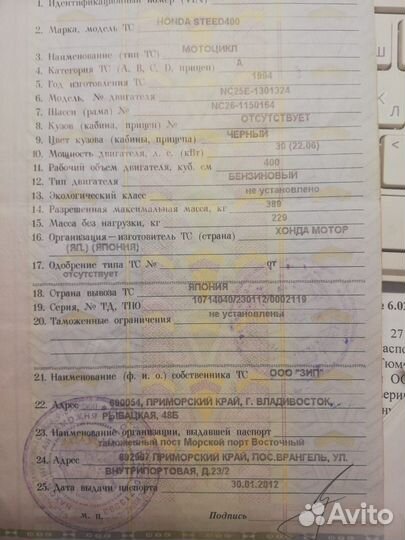 1. Идентификационный номер (VIN)
2. Марка, модель ТС HONDA STEED400
3. Наименование (тип ТС) МОТОЦИКЛ
4. Категория ТС (A, B, C, D, прицеп) A
5. Год изготовления ТС 1994
6. Модель, № двигателя NC25E-1301324
7. Шасси (рама) № NC26-1150164
8. Кузов (кабина, прицеп) № ОТСУТСТВУЕТ
9. Цвет кузова (кабины, прицепа) ЧЕРНЫЙ
10. Мощность двигателя, л. с. (кВт) 30 (22.06)
11. Рабочий объем двигателя, куб. см 400
12. Тип двигателя БЕНЗИНОВЫЙ
13. Экологический класс не установлено
14. Разрешенная максимальная масса, кг 389
15. Масса без нагрузки, кг 229
16. Организация—изготовитель ТС (страна) ХОНДА МОТОР
(ЯП.) (ЯПОНИЯ)
17. Одобрение типа ТС № от
отсутствует
18. Страна вывоза ТС ЯПОНИЯ
19. Серия, № ТД, ТПО 10714040/230112/0002119
20. Таможенные ограничения не установлены
21. Наименование (ф. и. о.) собственника ТС ООО "ЗИП"
22. Адрес 690054, ПРИМОРСКИЙ КРАЙ, Г. ВЛАДИВОСТОК,
РЫБАЦКАЯ, 48Б
23. Наименование организации, выдавшей паспорт
таможенный пост Морской порт Восточный
24. Адрес 692597 ПРИМОРСКИЙ КРАЙ, ПОС.ВРАНГЕЛЬ, УЛ.
ВНУТРИПОРТОВАЯ, Д.23/2
25. Дата выдачи паспорта 30.01.2012
М. П. Подпись
Avito